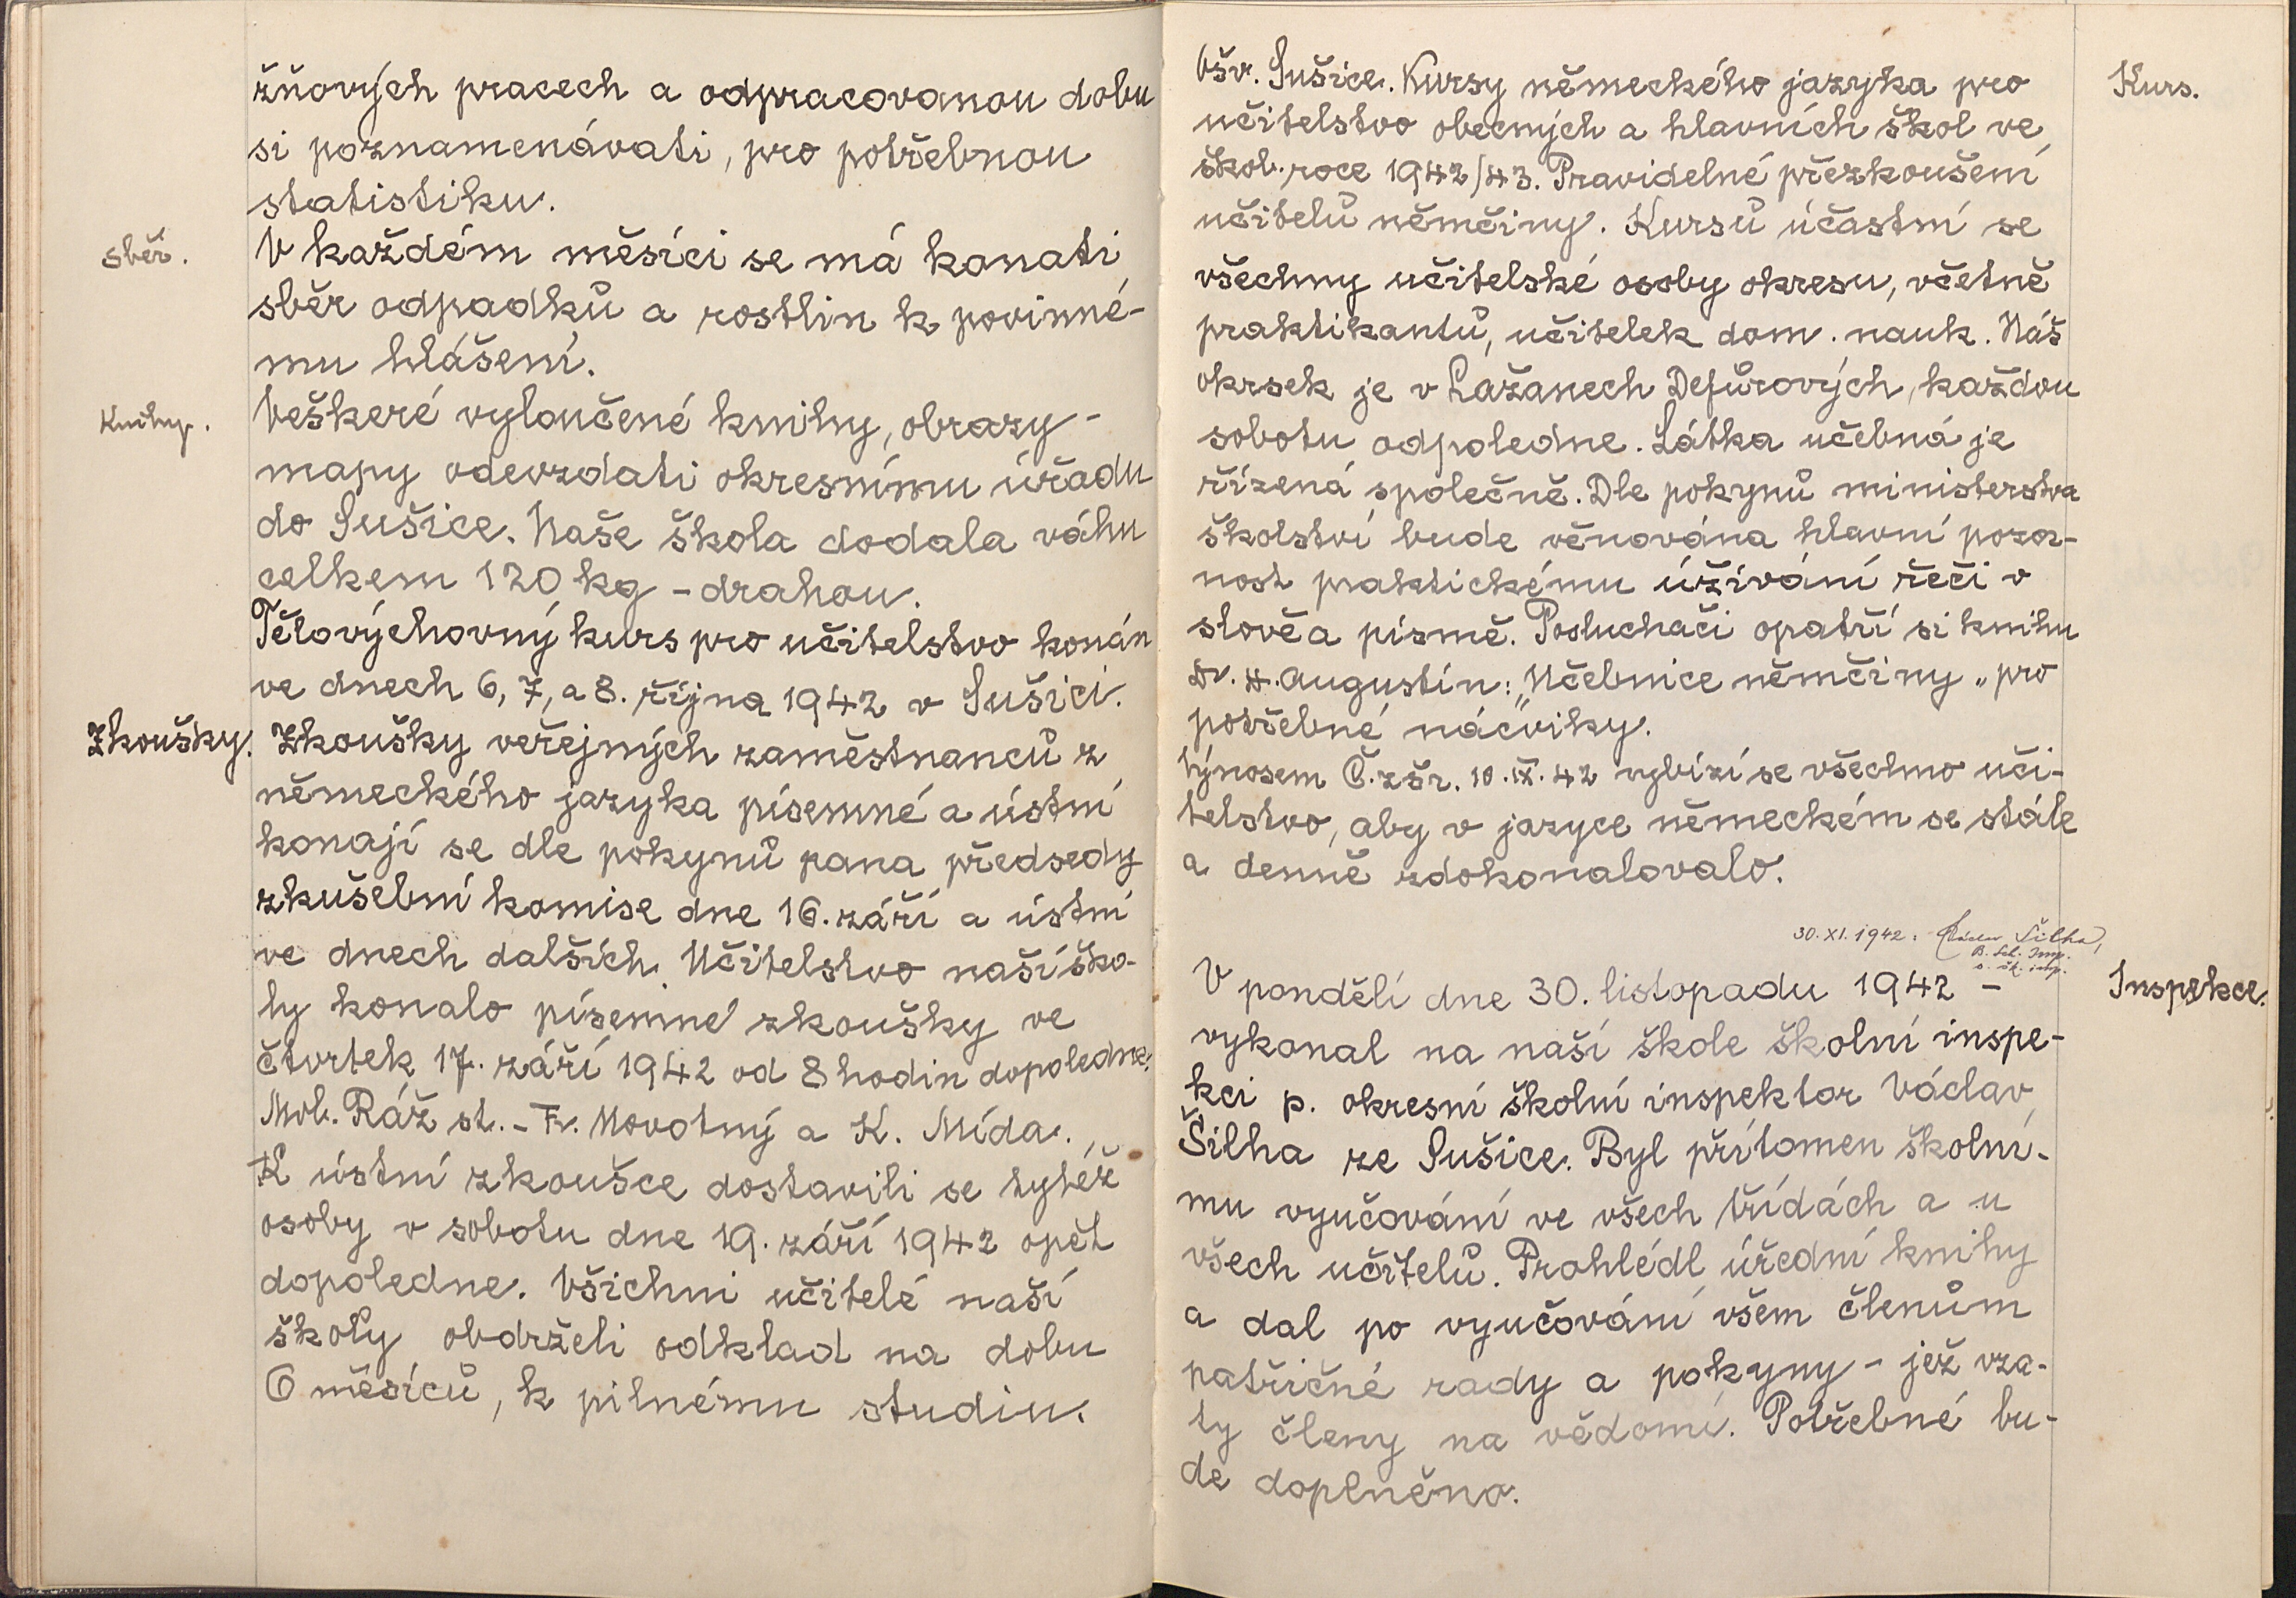 žňových pracech a odpracovanou dobu
si poznamenávati, pro potřebnou
statistiku.
sběr.
V každém měsíci se má konati
sběr odpadků a rostlin k povinné-
mu hlášení.
Knihy.
Veškeré vyloučené knihy, obrazy -
mapy odevzdati okresnímu úřadu
do Sušice. Naše škola dodala váhu
celkem 120 kg - drahou.
Tělovýchovný kurs pro učitelstvo konán
ve dnech 6, 7, a 8. října 1942 v Sušici.
Zkoušky.
Zkoušky veřejných zaměstnanců z
německého jazyka písemné a ústní
konají se dle pokynů pana předsedy
zkušební komise dne 16. září a ústní
ve dnech dalších. Učitelstvo naší ško-
ly konalo písemné zkoušky ve
čtvrtek 17. září 1942 od 8 hodin dopoledne.
Mob. Ráž st. - Fr. Novotný a K. Mída.
K ústní zkoušce dostavili se tytéž
osoby v sobotu dne 19. září 1942 opět
dopoledne. Všichni učitelé naší
školy obdrželi odklad na dobu
6 měsíců, k pilnému studiu.
Všv. Sušice. Kursy německého jazyka pro
Kurs.
učitelstvo obecných a hlavních škol ve
škol. roce 1942/43. Pravidelné přezkoušení
učitelů němčiny. Kursů účastní se
všechny učitelské osoby okresu, včetně
praktikantů, učitelek dom. nauk. Náš
okrsek je v Lažanech Defurových, každou
sobotu odpoledne. Látka učebná je
řízená společně. Dle pokynů ministerstva
školství bude věnována hlavní pozor-
nost praktickému úžívání řeči v
slově a písmě. Posluchači opatří si knihu
Dr. H. Augustin: „Učebnice němčiny„ pro
potřebné náčviky.
Výnosem Č. zšr. 10. IX. 42 vybízí se všechno uči-
telstvo, aby v jazyce německém se stále
a denně zdokonalovalo.
30. XI. 1942: Václav Šilha,
B. Sch. Insp.
o. šk. insp.
V pondělí dne 30. listopadu 1942 -
Inspekce.
vykonal na naší škole školní inspe-
kci p. okresní školní inspektor Václav
Šilha ze Sušice. Byl přítomen školní-
mu vyučování ve všech třídách a u
všech učitelů. Prohlédl úřední knihy
a dal po vyučování všem členům
patřičné rady a pokyny - jež vza-
ty členy na vědomí. Potřebné bu-
de doplněno.